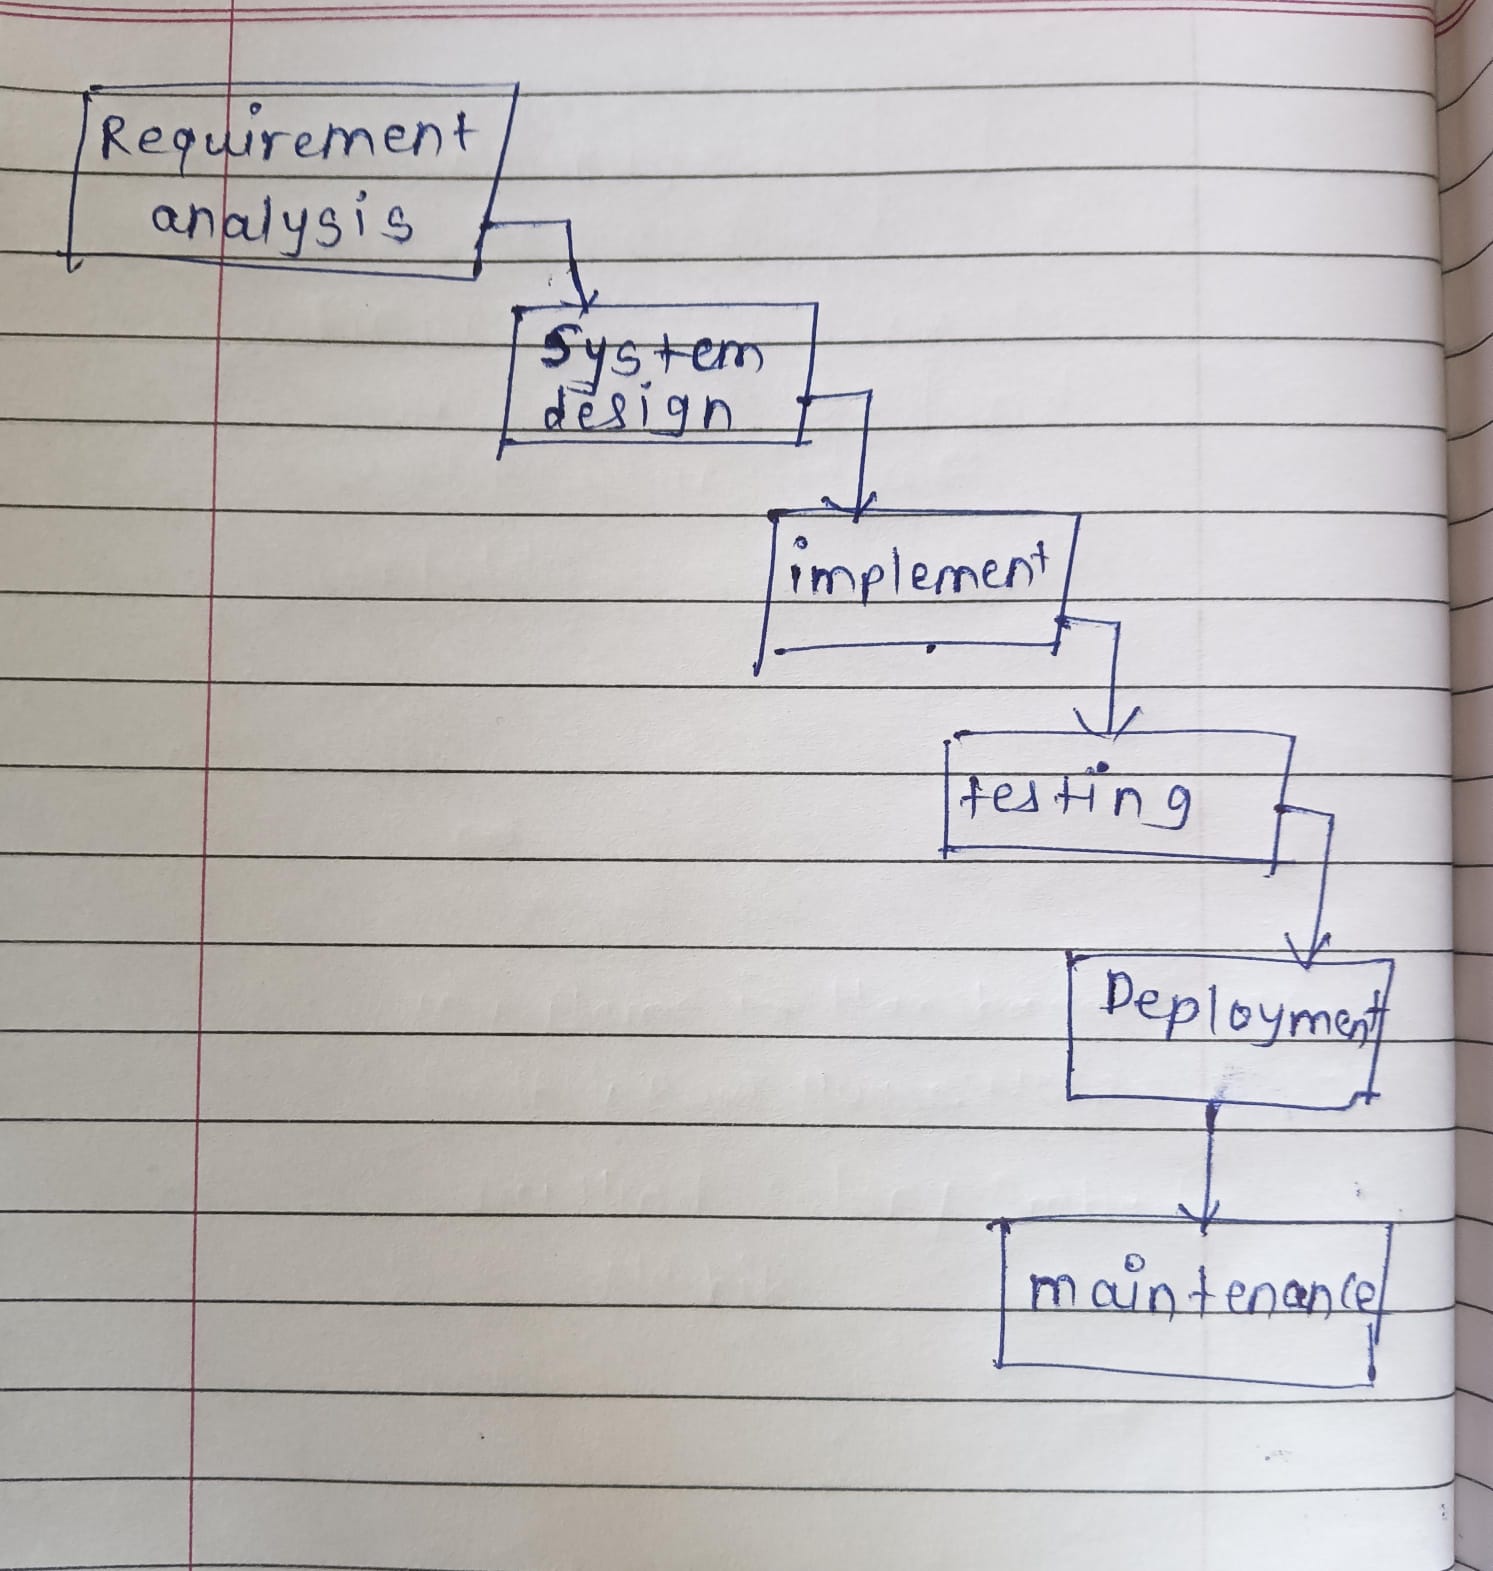 Requirement
analysis
System
design
implement
testing
Deployment
maintenance